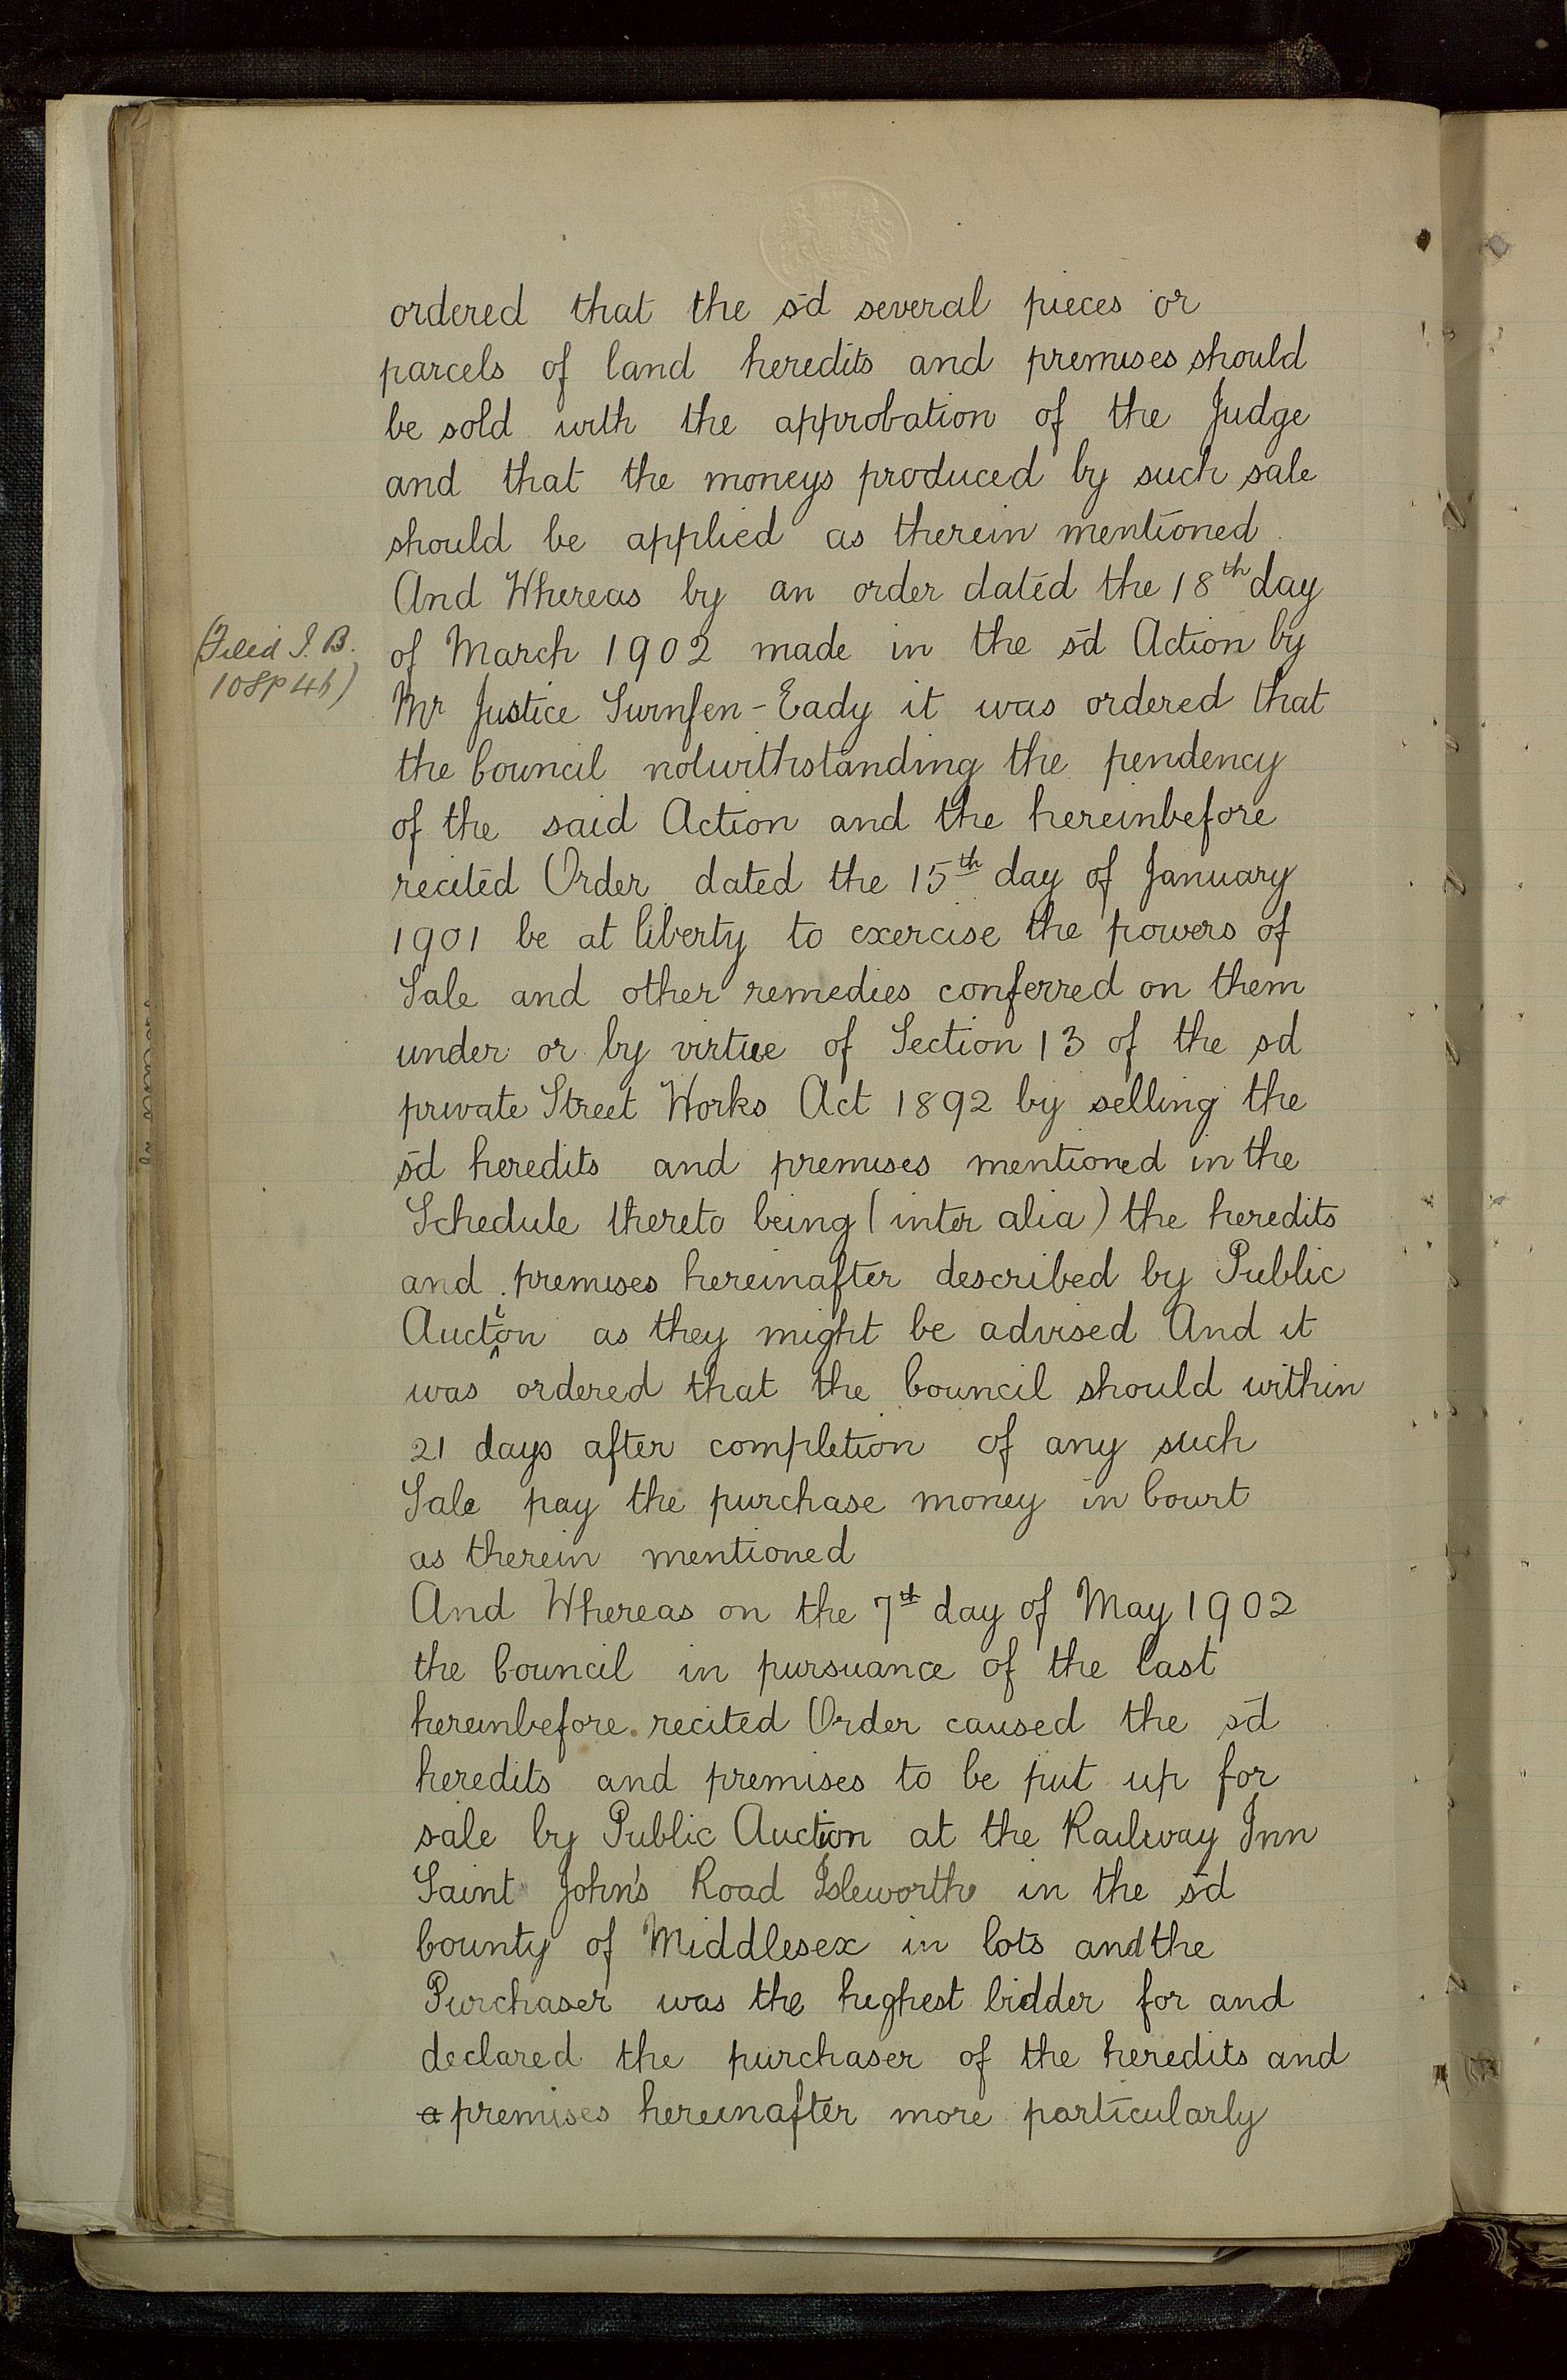 ordered that the sd several pieces or
parcels of land heredits and premises should
be sold with the approbation of the Judge
and that the moneys produced by such sale
should be applied as therein mentioned.
And Whereas by an order dated the 18th day
(Filed I. B.
108 p 46)
of March 1902 made in the sd Action by
Mr Justice Swinfen-Eady it was ordered that
the Council notwithstanding the pendency
of the said Action and the hereinbefore
recited Order dated the 15th day of January
1901 be at liberty to exercise the powers of
Sale and other remedies conferred on them
under or by virtue of Section 13 of the sd
private Street Works Act 1892 by selling the
sd heredits and premises mentioned in the
Schedule thereto being (inter alia) the heredits
and premises hereinafter described by Public
Auction as they might be advised And it
was ordered that the Council should within
21 days after completion of any such
Sale pay the purchase money in Court
as therein mentioned
And Whereas on the 7th day of May 1902
the Council in pursuance of the last
hereinbefore recited Order caused the sd
heredits and premises to be put up for
sale by Public Auction at the Railway Inn
Saint John's Road Isleworth in the sd
County of Middlesex in lots and the
Purchaser was the highest bidder for and
declared the purchaser of the heredits and
a premises hereinafter more particularly